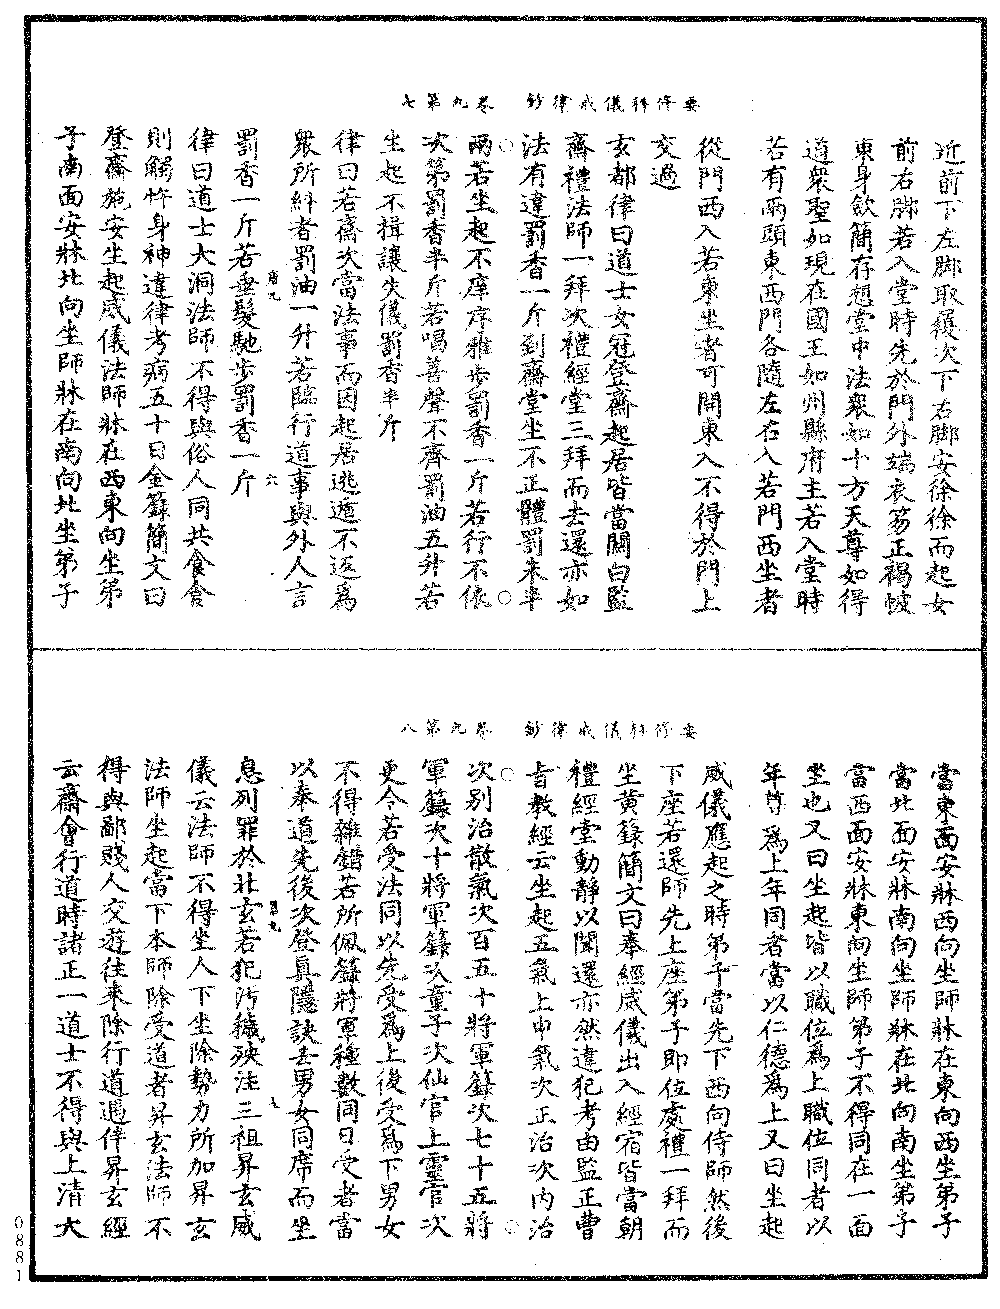 要修科儀戒律鈔　卷九第七
近前下左脚取履次下右脚安徐徐而起女
前右脚若入堂時先於門外端衣笏正褐帔
東身斂簡存想堂中法衆如十方天尊如得
道衆聖如現在國王如州縣府主若入堂時
若有兩頭東西門各隨左右入若門西坐者
從門西入若東坐者可開東入不得於門上
交過
玄都律曰道士女冠登齋起居皆當關白監
齋禮法師一拜次禮經堂三拜而去還亦如
法有違罰香一斤到齋堂坐不正體罰朱半
兩若坐起不庠序雅步罰香一斤若行不依
次第罰香半斤若唱善聲不齊罰油五升若
坐起不揖讓失儀罰香半斤
律曰若齋次當法事而因起居逃遁不返爲
衆所糾者罰油一升若臨行道事與外人言
唐九　六
罰香一斤若垂髮馳步罰香一斤
律曰道士大洞法師不得與俗人同共食食
則觸忤身神違律考病五十日金籙簡文曰
登齋施安坐起威儀法師牀在西東向坐弟
子南面安牀北向坐師牀在南向北坐弟子
要修科儀戒律鈔　卷九第八
當東面安牀西向坐師牀在東向西坐弟子
當北面安牀南向坐師牀在北向南坐弟子
當西面安牀東向坐師弟子不得同在一面
坐也又曰坐起皆以職位爲上職位同者以
年尊爲上年同者當以仁德爲上又曰坐起
威儀應起之時弟子當先下西向侍師然後
下座若還師先上座弟子即位處禮一拜而
坐黄籙簡文曰奉經威儀出入經宿皆當朝
禮經堂動靜以聞還亦然違犯考由監正曹
旨教經云坐起五氣上中氣次正治次内治
次別治散氣次百五十將軍籙次七十五將
軍籙次十將軍籙次童子次仙官上靈官次
更令若受法同以先受爲上後受爲下男女
不得雜錯若所佩籙將軍種數同日受者當
以奉道先後次登眞隱訣去男女同席而坐
息列罪於北玄若犯汚穢殃注三祖昇玄威
儀云法師不得坐人下坐除勢力所加昇玄
法師坐起當下本師除受道者昇玄法師不
得與鄙賤人交遊往來除行道過伴昇玄經
云齋會行道時諸正一道士不得與上清大
0881